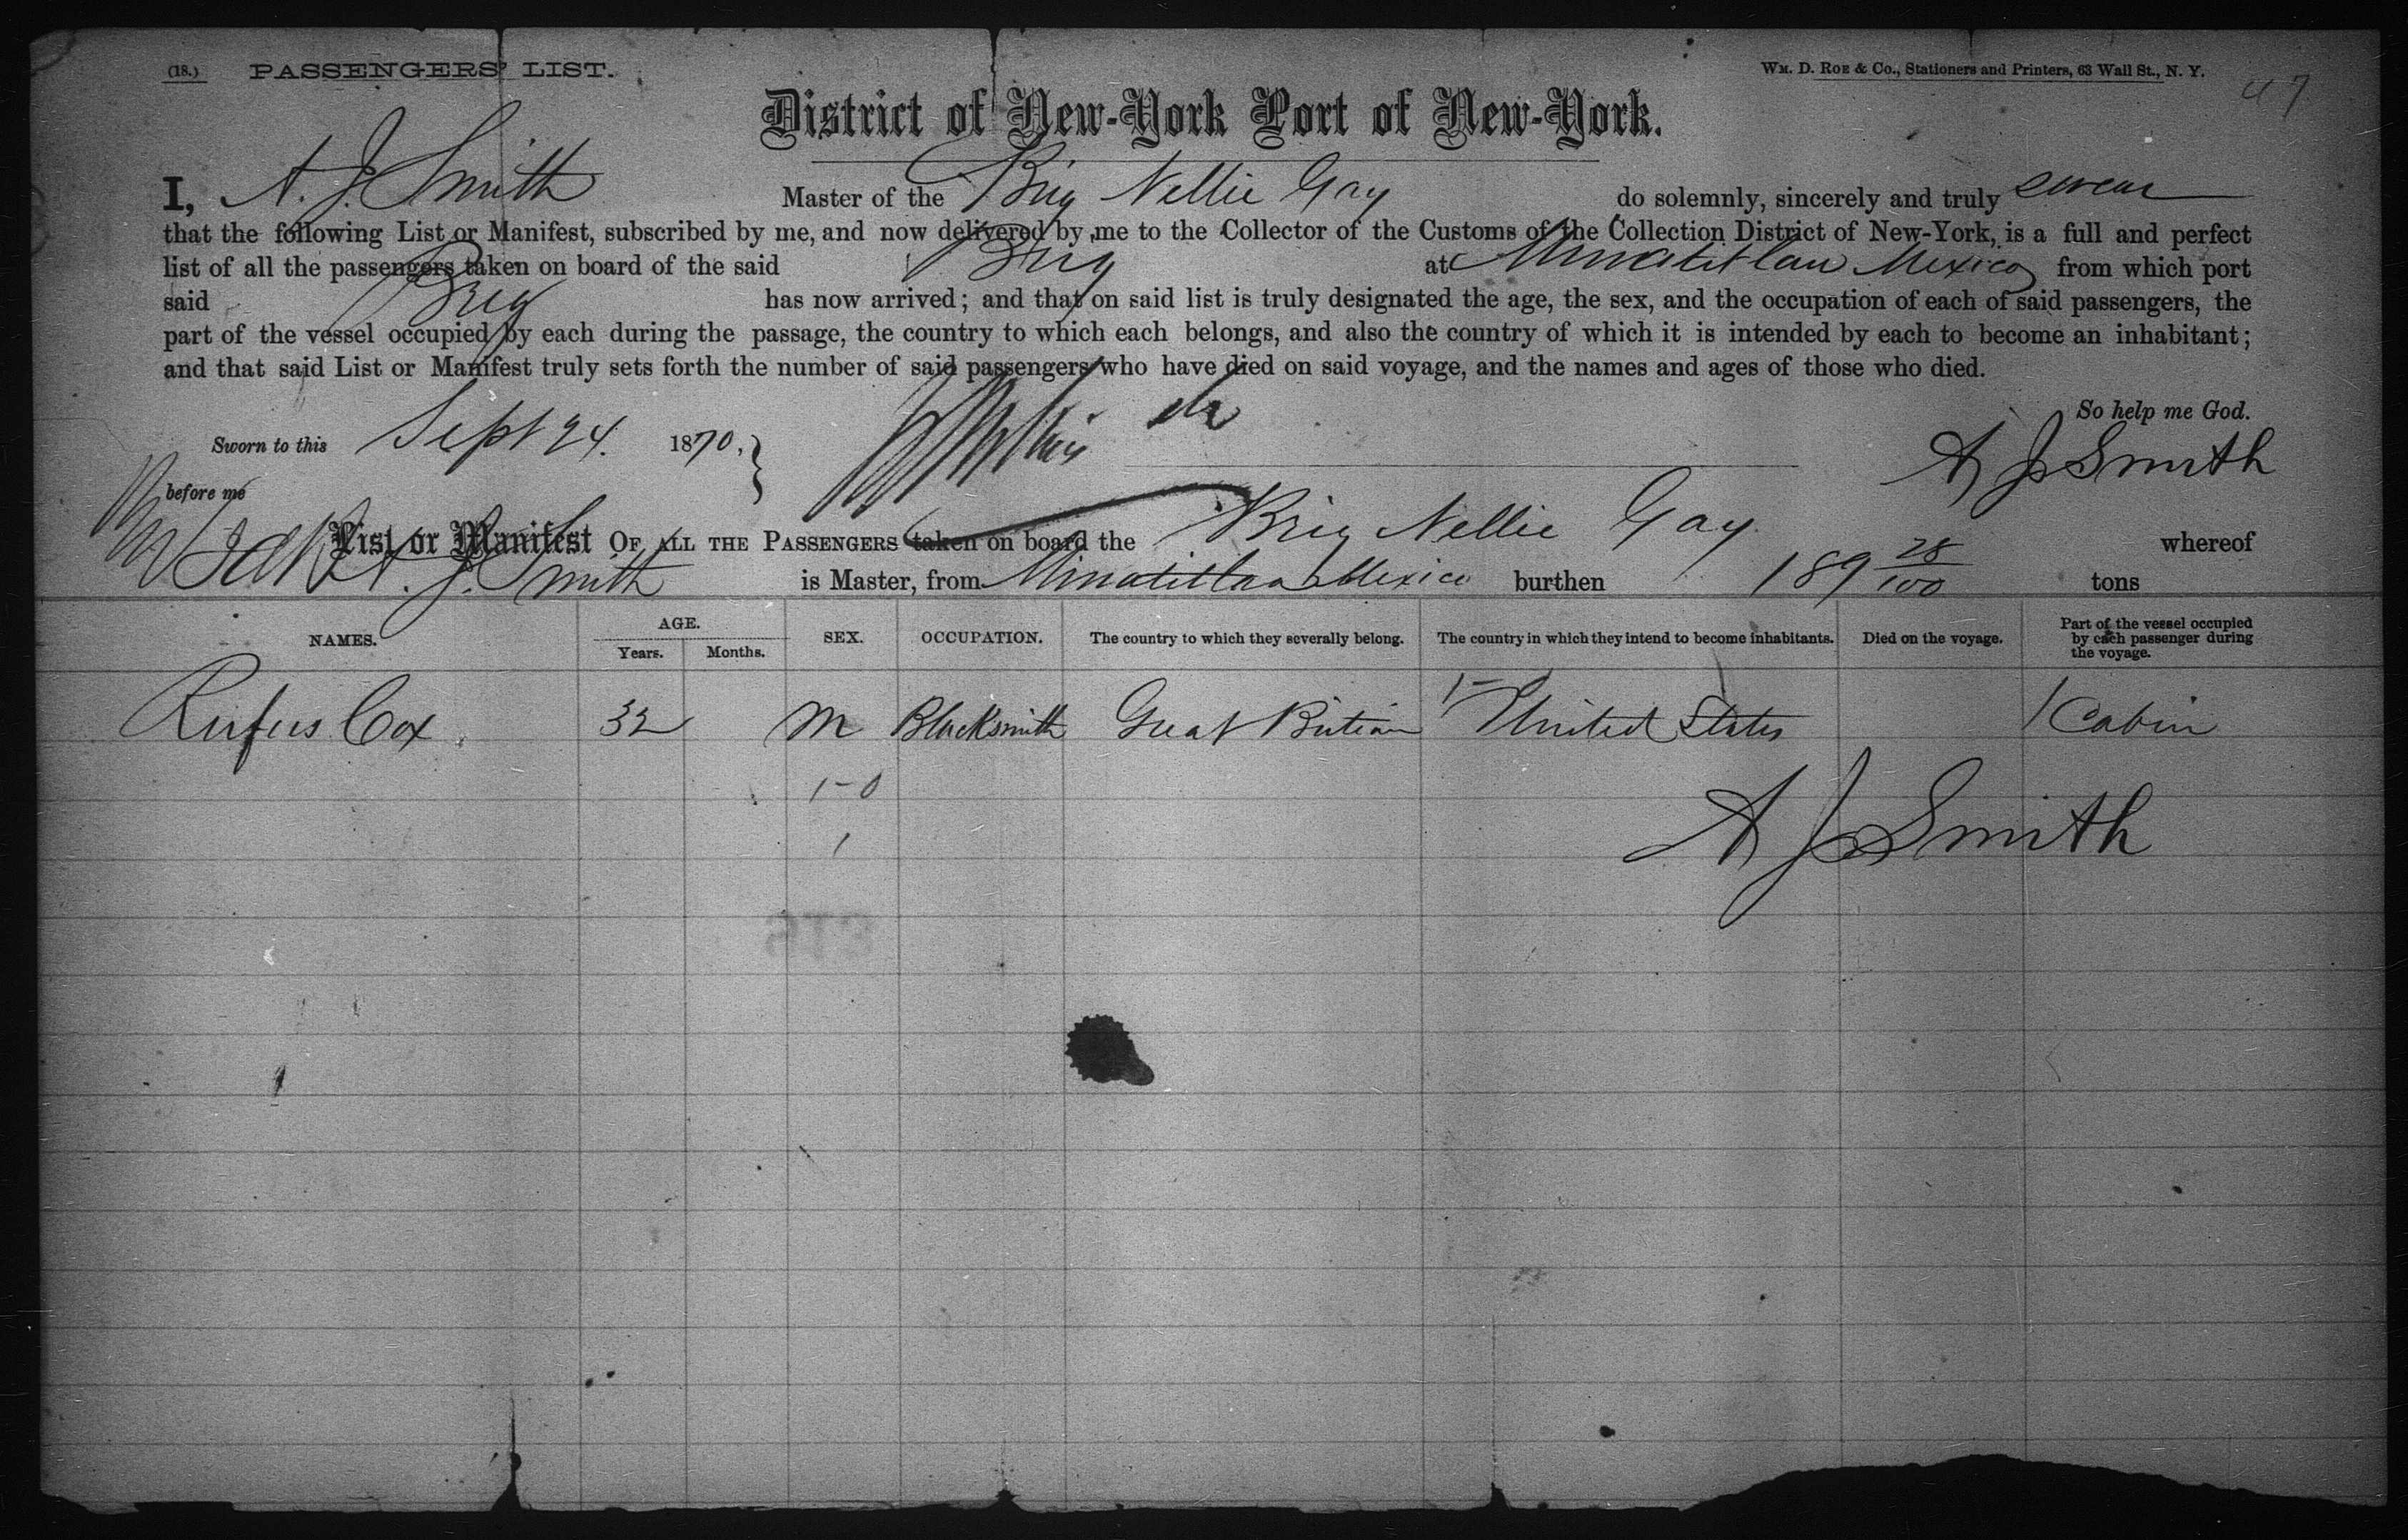 (18.) PASSENGERS' LIST.
WM. D. ROE & Co., Stationers and Printers, 63 Wall St., N. Y.
47
District of New-York Port of New-York.
I, A. J. Smith Master of the Brig Nellie Gay do solemnly, sincerely and truly swear
that the following List or Manifest, subscribed by me, and now delivered by me to the Collector of the Customs of the Collection District of New-York, is a full and perfect
list of all the passengers taken on board of the said Brig at Minatitlan Mexico from which port
said Brig has now arrived; and that on said list is truly designated the age, the sex, and the occupation of each of said passengers, the
part of the vessel occupied by each during the passage, the country to which each belongs, and also the country of which it is intended by each to become an inhabitant;
and that said List or Manifest truly sets forth the number of said passengers who have died on said voyage, and the names and ages of those who died.
So help me God.
Sworn to this Sept 24. 1870,
A J Smith
before me
List or Manifest OF ALL THE PASSENGERS taken on board the Brig Nellie Gay whereof
A. J. Smith is Master, from Minatitlan Mexico burthen 189 28/100 tons
NAMES. AGE. Years. Months. SEX. OCCUPATION. The country to which they severally belong. The country in which they intend to become inhabitants. Died on the voyage. Part of the vessel occupied by each passenger during the voyage.
Rufus Cox 32 M Blacksmith Great Britian 1- United States 1 Cabin
1-0
1
A J Smith